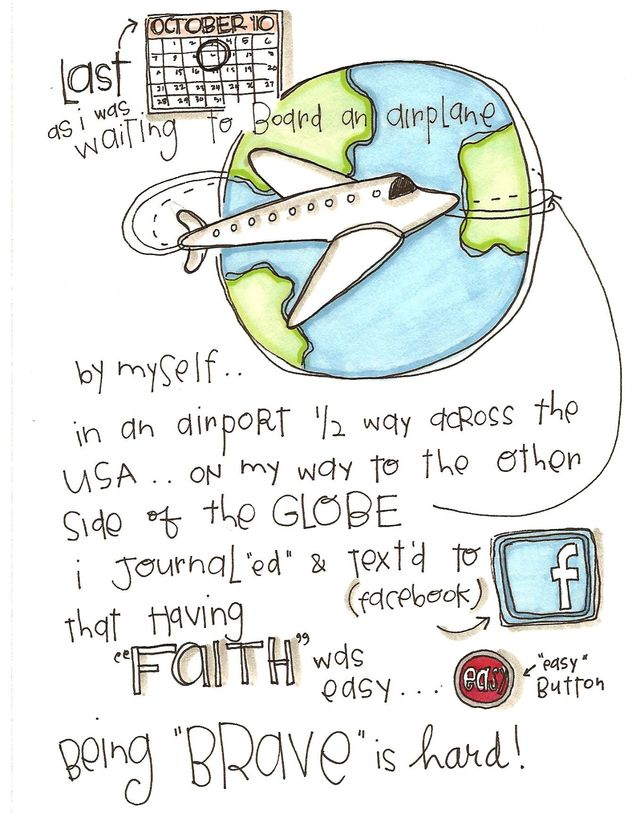 OCTOBER '10
1 2 3 4 5 6
21 22 23 24 25 26 27
28 29 30 31
Last
as i was
waiting to Board an airplane
by myself..
in an airport 1/2 way across the
USA .. on my way to the other
Side of the GLOBE
i Journal "ed" & Text'd to
(facebook)
f
that Having
"FAITH" was
easy...
easy
"easy"
Button
Being "BRave" is hard!